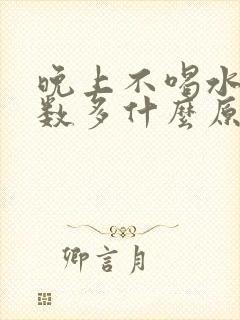 晚上不喝水
数多什麼原
卿言月